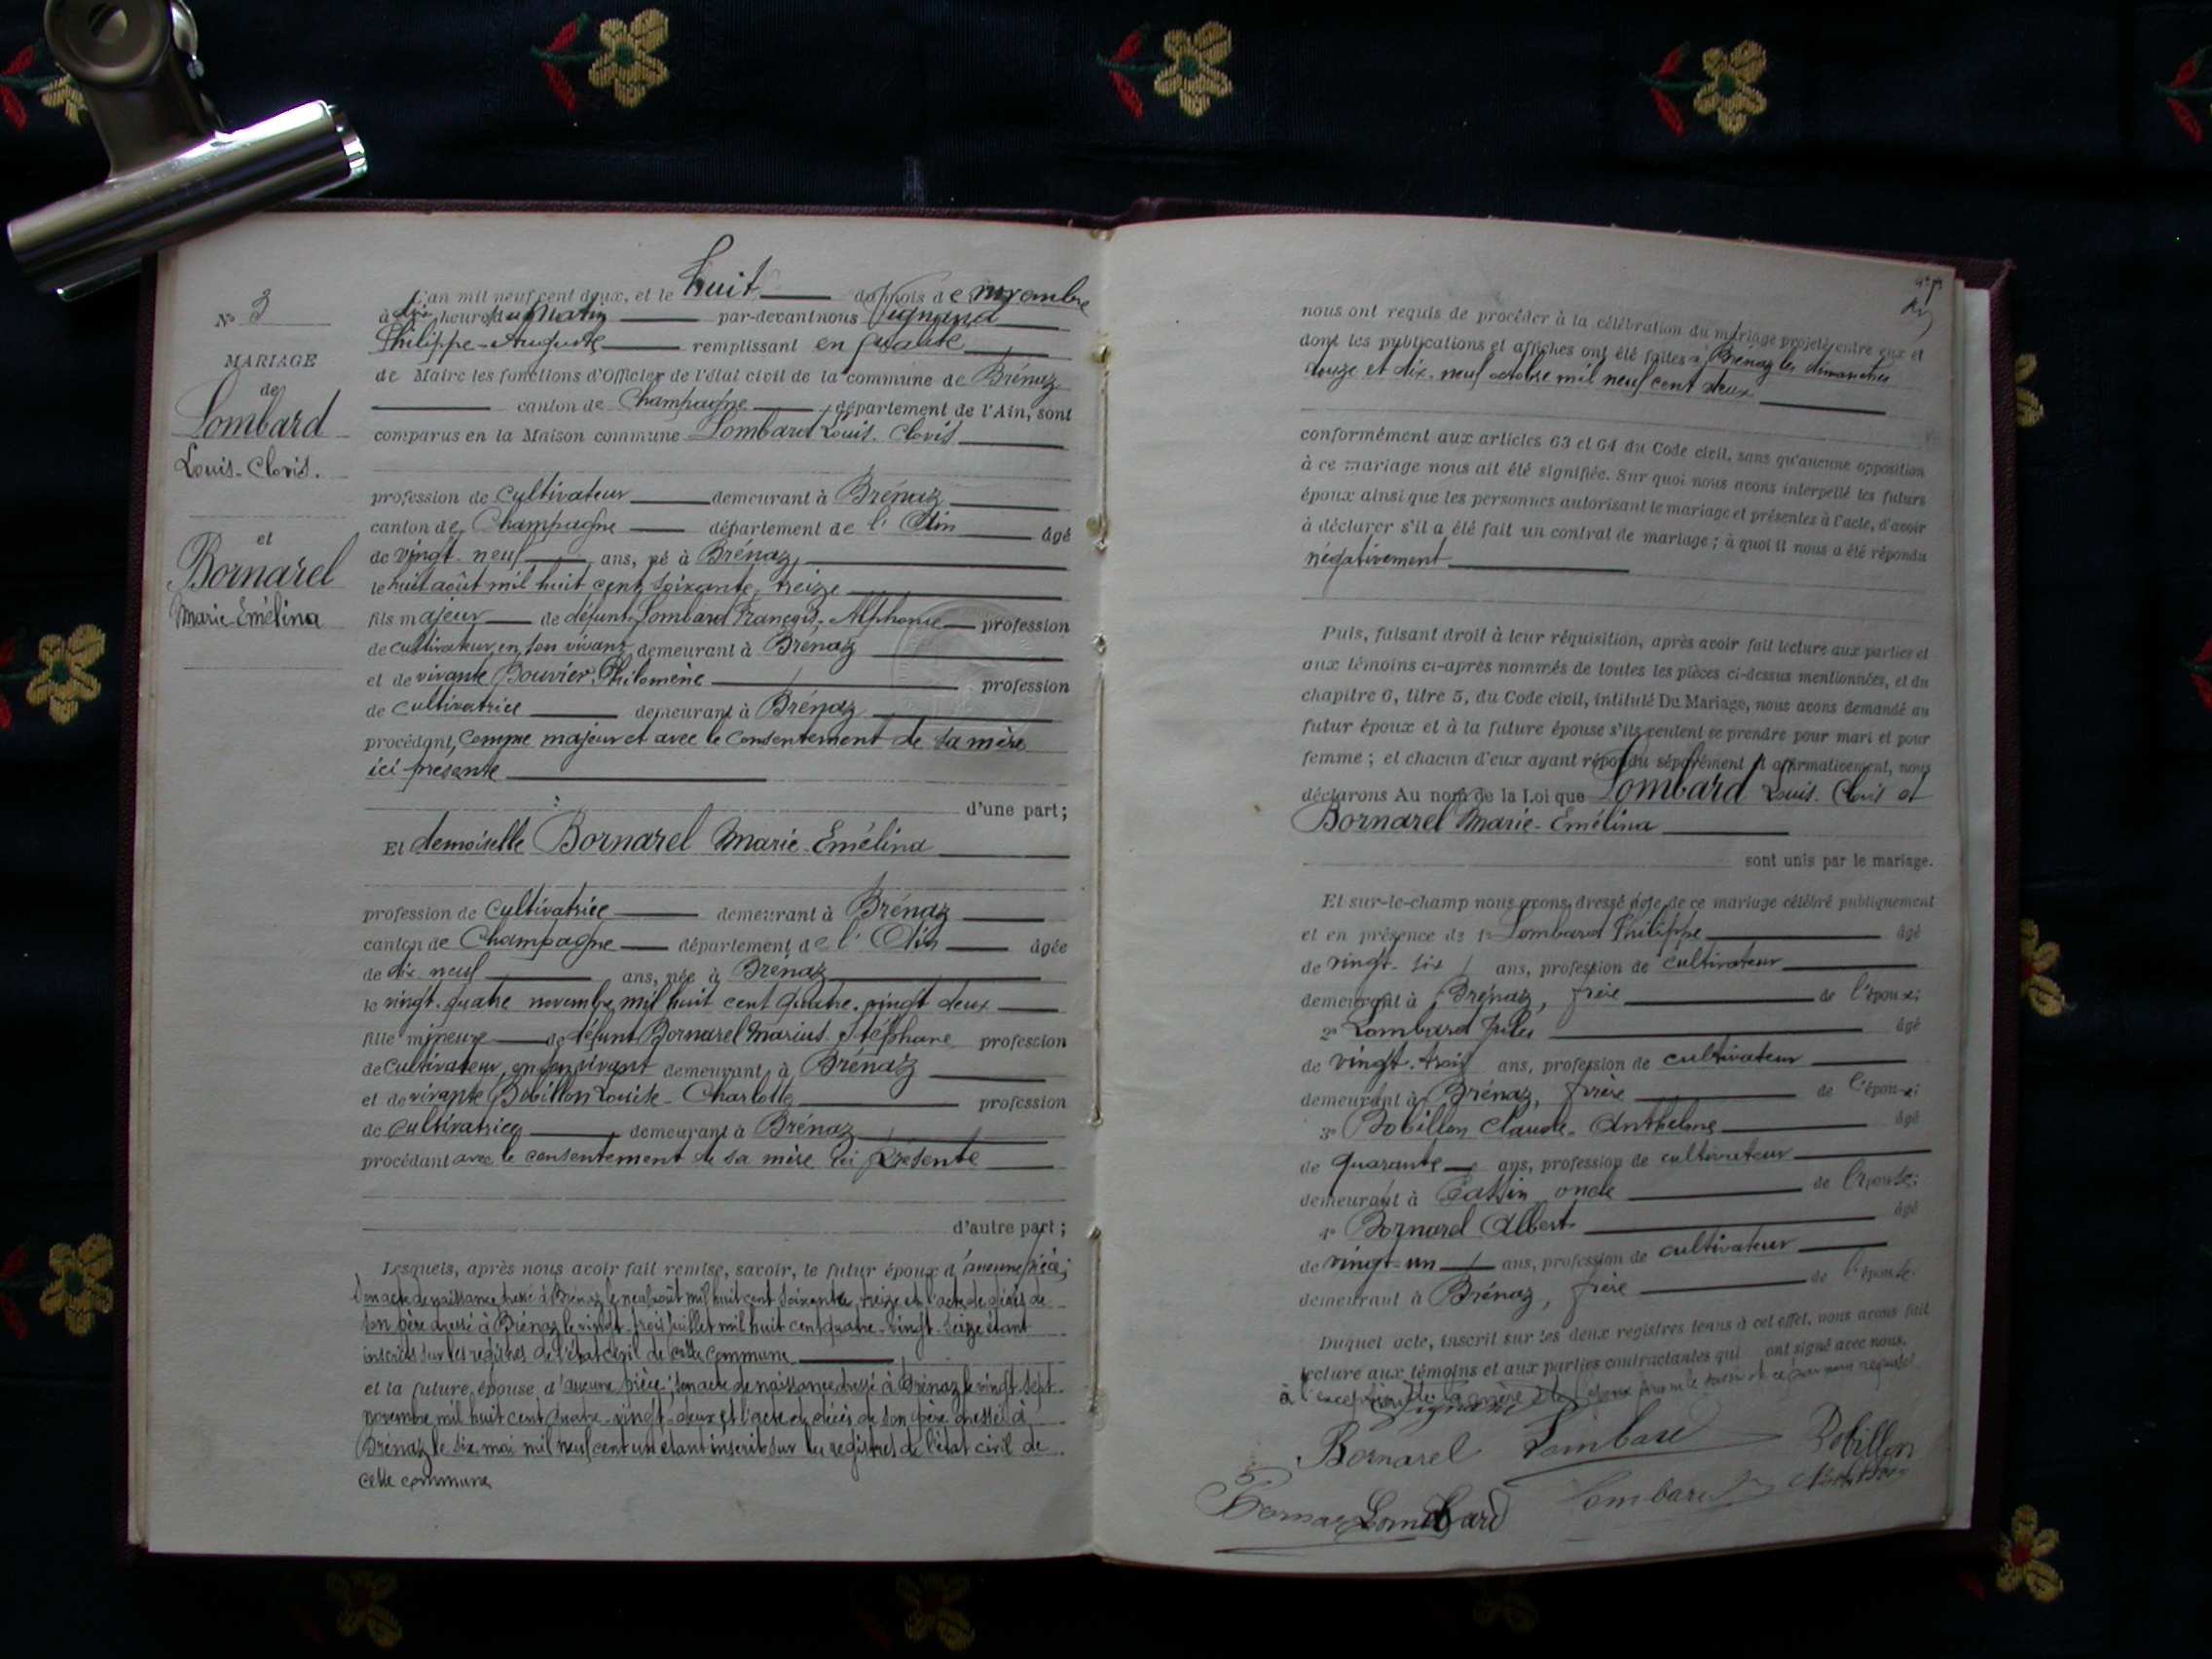 N° 3
MARIAGE
de
Lombard
Louis-Clovis.
et
Bornarel
Marie-Emélina
L'an mil neuf cent deux, et le huit du mois de novembre
à dix heures du Matin par-devant nous Vignand
Philippe-Auguste remplissant en qualité
de Maire les fonctions d'Officier de l'état civil de la commune de Brénaz
canton de Champagne département de l'Ain, sont
comparus en la Maison commune Lombard Louis-Clovis
profession de cultivateur demeurant à Brénaz
canton de Champagne département de l'Ain âgé
de vingt-neuf ans, né à Brénaz
le huit août mil huit cent soixante-treize
fils majeur de défunt Lombard François-Alphonse profession
de cultivateur en son vivant demeurant à Brénaz
et de vivante Bouvier Philomène profession
de cultivatrice demeurant à Brénaz
procédant comme majeur et avec le consentement de sa mère
ici présente
d'une part;
Et demoiselle Bornarel Marie-Emélina
profession de cultivatrice demeurant à Brénaz
canton de Champagne département de l'Ain âgée
de dix-neuf ans, née à Brénaz
le vingt-quatre novembre mil huit cent quatre-vingt deux
fille mineure de défunt Bornarel Marius-Stéphane profession
de cultivateur en son vivant demeurant à Brénaz
et de vivante Bobillon Louise-Charlotte profession
de cultivatrice demeurant à Brénaz
procédant avec le consentement de sa mère ici présente
d'autre part;
Lesquels, après nous avoir fait remise, savoir, le futur époux d'aucune pièce;
son acte de naissance dressé à Brénaz le neuf août mil huit cent soixante-treize et l'acte de décès de
son père dressé à Brénaz le vingt-trois juillet mil huit cent quatre-vingt-seize étant
inscrits sur les registres de l'état civil de cette commune
et la future épouse d'aucune pièce; son acte de naissance dressé à Brénaz le vingt-sept
novembre mil huit cent quatre-vingt-deux et l'acte de décès de son père dressé à
Brénaz le six mai mil neuf cent un étant inscrits sur les registres de l'état civil de
cette commune
nous ont requis de procéder à la célébration du mariage projeté entre eux et
dont les publications et affiches ont été faites à Brénaz les dimanches
douze et dix-neuf octobre mil neuf cent deux
conformément aux articles 63 et 64 du Code civil, sans qu'aucune opposition
à ce mariage nous ait été signifiée. Sur quoi nous avons interpellé les futurs
époux ainsi que les personnes autorisant le mariage et présentes à l'acte, d'avoir
à déclarer s'il a été fait un contrat de mariage; à quoi il nous a été répondu
négativement
Puis, faisant droit à leur réquisition, après avoir fait lecture aux parties et
aux témoins ci-après nommés de toutes les pièces ci-dessus mentionnées, et du
chapitre 6, titre 5, du Code civil, intitulé Du Mariage, nous avons demandé au
futur époux et à la future épouse s'ils veulent se prendre pour mari et pour
femme; et chacun d'eux ayant répondu séparément et affirmativement, nous
déclarons Au nom de la Loi que Lombard Louis-Clovis et
Bornarel Marie-Emélina
sont unis par le mariage.
Et sur-le-champ nous avons dressé acte de ce mariage célébré publiquement
et en présence de 1° Lombard Philippe âgé
de vingt-six ans, profession de cultivateur
demeurant à Brénaz, frère de l'époux;
2° Lombard Jules âgé
de vingt-trois ans, profession de cultivateur
demeurant à Brénaz, frère de l'époux;
3° Bobillon Claude-Anthelme âgé
de quarante ans, profession de cultivateur
demeurant à oncle de l'épouse;
4° Bornarel Albert âgé
de vingt-un ans, profession de cultivateur
demeurant à Brénaz, frère de l'épouse.
Duquel acte, inscrit sur les deux registres tenus à cet effet, nous avons fait
lecture aux témoins et aux parties contractantes qui ont signé avec nous.
à l'exception de la mère de l'époux
Vignand
Bornarel Lombard Bobillon
Lombard Lombard